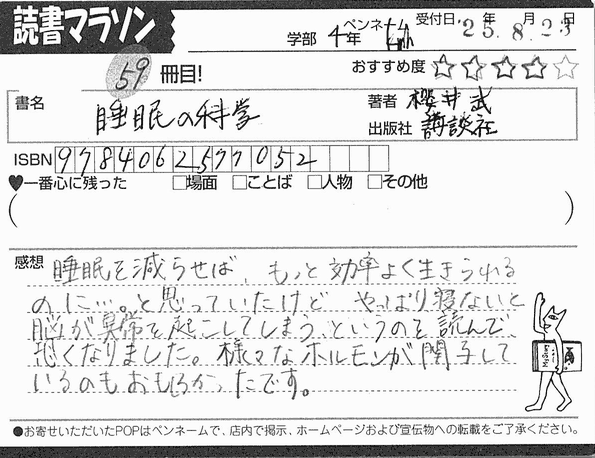 読書マラソン
学部 4年 ペンネーム kmh 受付日 '25年 8月 23日
59 冊目!
おすすめ度 ★★★★☆
書名 睡眠の科学
著者 櫻井武
出版社 講談社
ISBN 9784062577052
♥一番心に残った □場面 □ことば □人物 □その他
( )
感想 睡眠を減らせば、もっと効率よく生きられる
のに…。と思っていたけど やっぱり寝ないと
脳が異常を起こしてしまう、というのを読んで、
怖くなりました。様々なホルモンが関与して
いるのもおもしろかったです。
●お寄せいただいたPOPはペンネームで、店内で掲示、ホームページおよび宣伝物への転載をご了承ください。